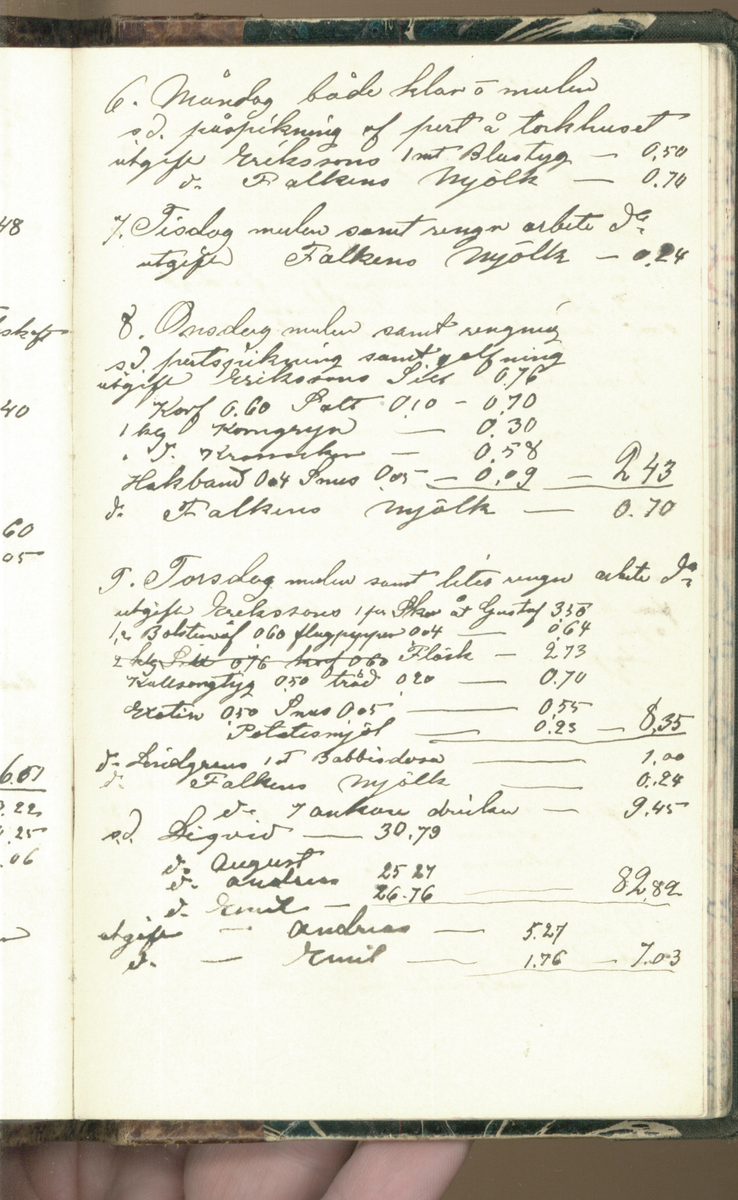 48
40
60
05
6.07
2.22
.25
.06
6. Måndag både klar o mulen
s.d. påspikning af pert å torkhuset
utgift Erikssons 1 mt Blustyg — 0.50
d. Falkens Mjölk — 0.70
7. Tisdag mulen samt rengn arbete do
utgift Falkens Mjölk — 0.24
8. Onsdag mulen samt rengnig
s.d. pertspikning samt
utgift Erikssons Sill 0.76
Korf 0.60 Salt 0.10 — 0.70
1 kg Korngryn — 0.30
" d. — 0.58
Hakband 0.04 Snus 0.05 — 0.09 — 2.43
d. Falkens Mjölk — 0.70
9. Torsdag mulen samt litet rengn arbete do
utgift Erikssons 1 par Skor åt Gustaf 3.50
0.60 flugpapper 0.04 — 0.64
2 kg Sill 0.76 korf 0.60 Fläsk — 2.73
0.50 tråd 0.20 — 0.70
0.50 Snus 0.05 — 0.55
Potatismjöl — 0.23 — 8.35
d. Lindgrens 1 st — 1.00
d. Falkens Mjölk — 0.24
d. 7 ankare dricka — 9.45
s.d. Liqvid — 30.79
d. August
d. Andreas 25 27
d. Emil — 26.76 — 82.82
utgift — Andreas — 5.27
d. — Emil — 1.76 — 7.03